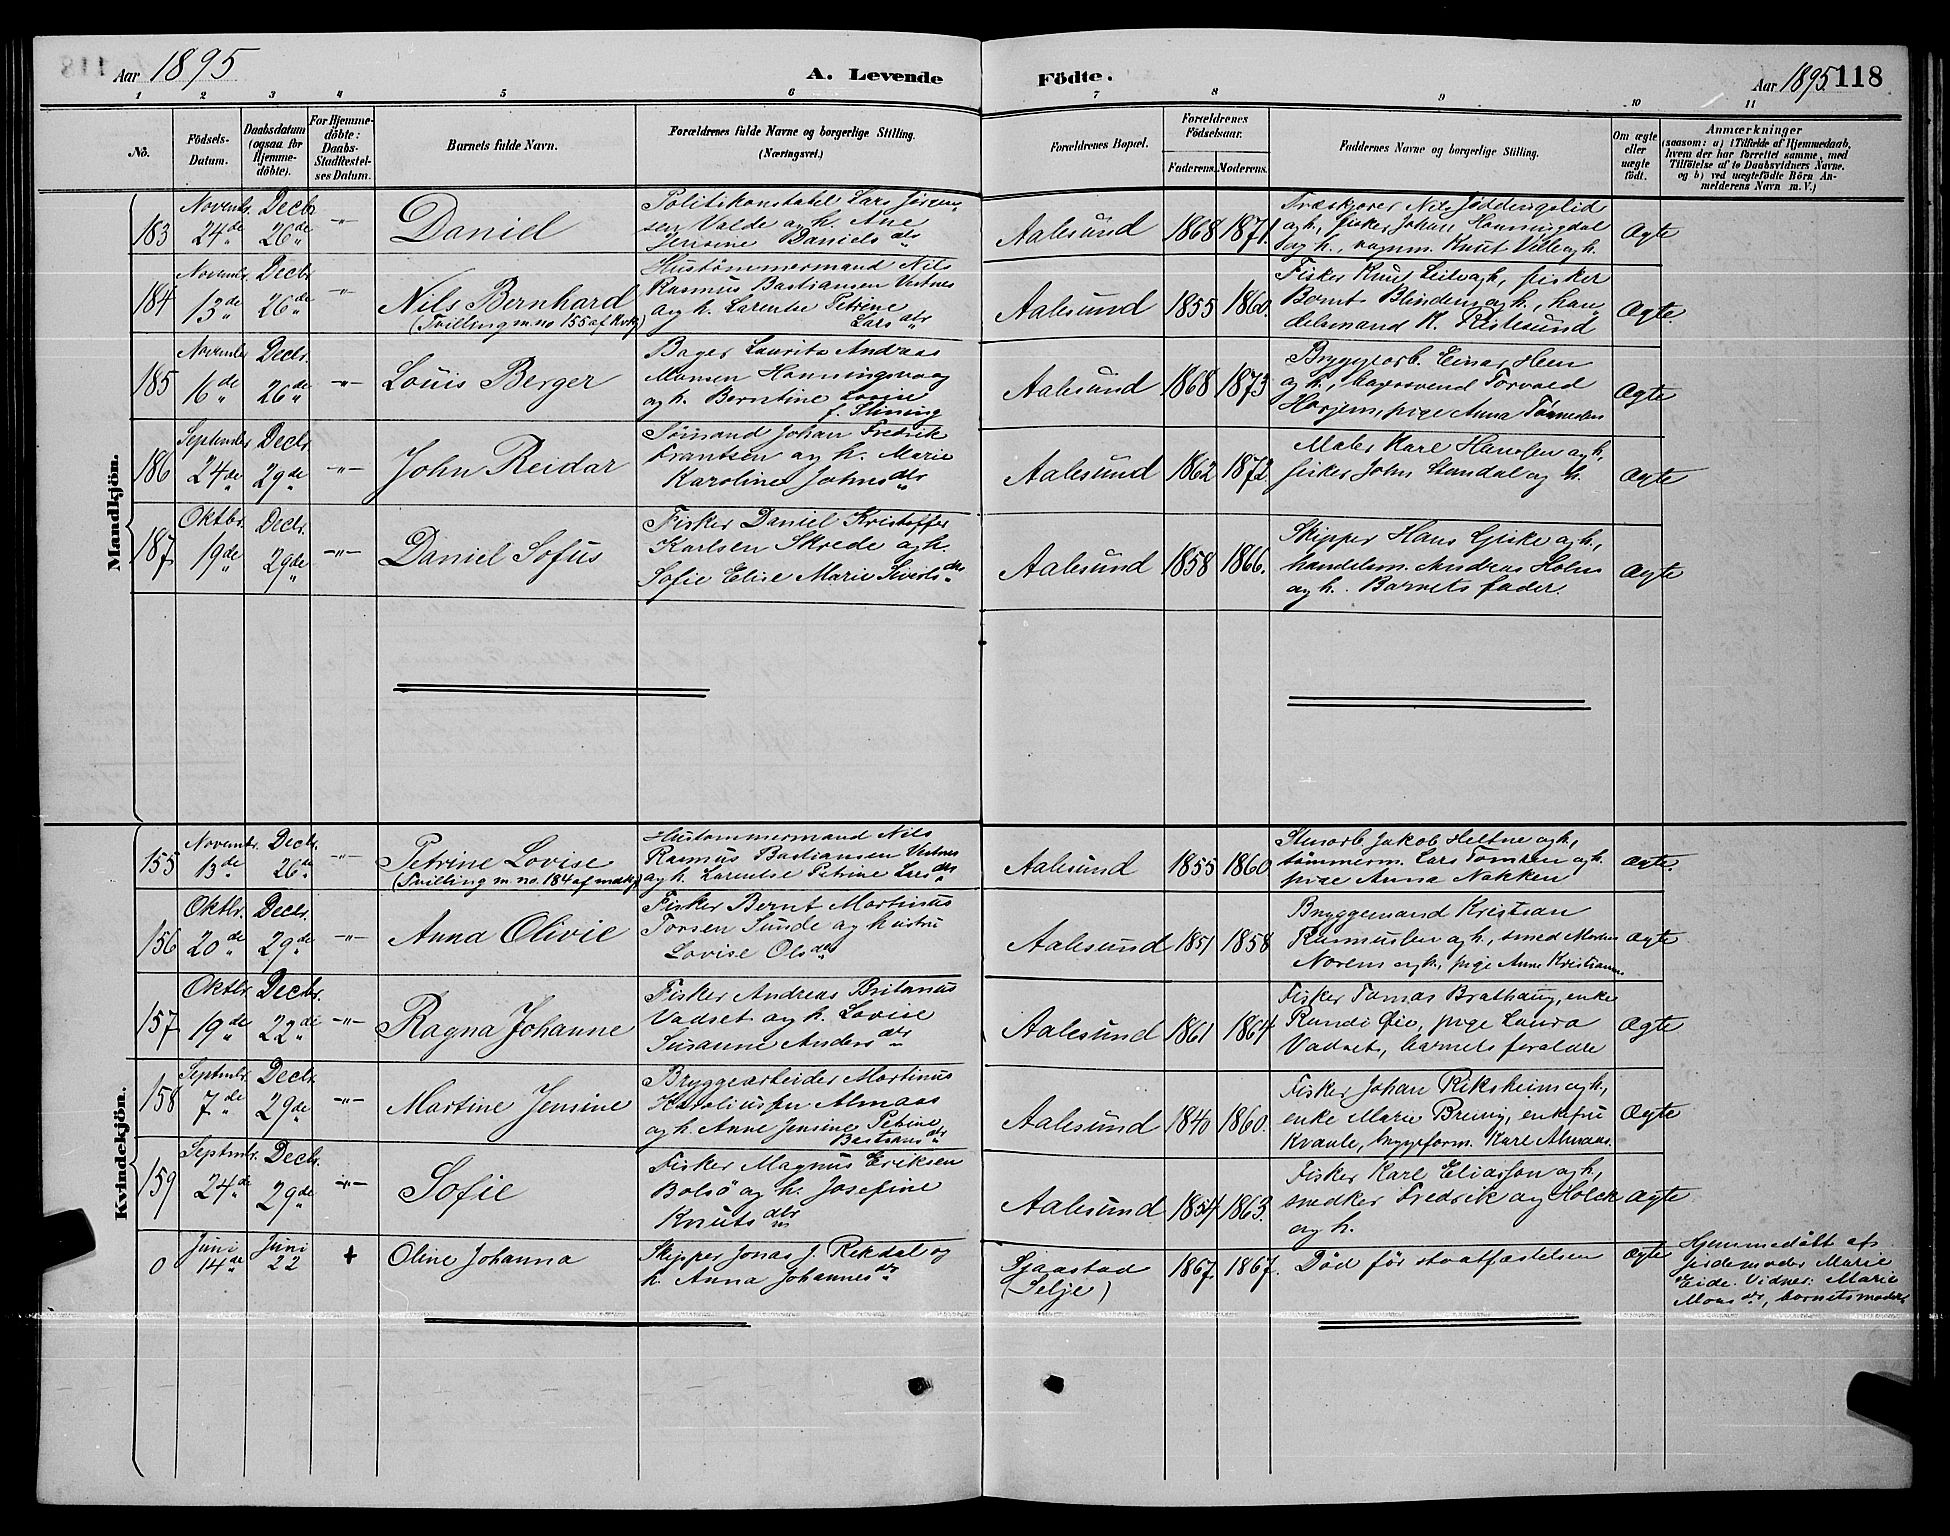 Aar 1895
A. Levende Födte.
Aar 1895 118
1 2 3 4 5 6 7 8 9 10 11
No.
Födsels-Datum.
Daabsdatum (ogsaa for Hjemme-döbte).
For Hjemme-döbte: Daabs-Stadfæstel-ses Datum.
Barnets fulde Navn.
Forældrenes fulde Navne og borgerlige Stilling. (Næringsvei.)
Forældrenes Bopæl.
Forældrenes Födselsaar.
Faderens. Moderens.
Faddernes Navne og borgerlige Stilling.
Om ægte eller uægte födt.
Anmærkninger
(saasom: a) i Tilfælde af Hjemmedaab, hvem der har forrettet samme, med Tilföielse af to Daabsvidners Navne, og b) ved uægtefödte Börn An-melderens Navn m. V.)
Mandkjön.
183 Novembr. 24de Decbr. 26de -"- Daniel
Politikonstabel Lars Jørgen-
sen Valde og h. Ane
Jensine Daniels dtr
Aalesund 1868 1871.
og h., fisker Johan Honningdal
og h., Knut Ville og h.
Ægte
184 Novembr. 13de Decbr. 26de -"- Nils Bernhard
(Tvilling m. no 155 af kvkj)
Hustømmermand Nils
Rasmus Bastiansen Vestnes
og h. Larentse Petrine
Lars dtr
Aalesund 1855 1860.
Fisker Knut og h., fisker
Bernt Blindem og h., han-
delsmand K.
Ægte.
185 Novembr. 16de Decbr. 26de -"- Louis Berger
Bager Laurits Andreas
Monsen Honningsvaag
og h. Berntine Lovise
f. Slyning
Aalesund 1868 1873
Bryggearb. Einar Hem
og h., bagersvend Torvald
pige Anna
Ægte
186 Septembr. 24de Decbr. 29de -"- John Reidar
Sømand Johan Fredrik
Frantsen og h. Marie
Karoline Johns dtr
Aalesund 1862 1872.
Maler Karl Hansen og h.,
fisker John Standal og h.
Ægte
187 Oktbr. 19de Decbr. 29de -"- Daniel Sofus
Fisker Daniel Kristoffer
Karlsen Skrede og h.
Sofie Elise Marie Siverts dtr
Aalesund 1858 1866.
Skipper Hans Gjske og h.,
handelsm. Andreas Holm
og h. Barnets fader.
Ægte
Kvindekjön.
155 Novembr. 13de Decbr. 26de -"- Petrine Lovise
(Tvilling m. no. 184 af mdkj)
Hustømmermand Nils
Rasmus Bastiansen Vestnes
og h. Larentse Petrine Lars dtr
Aalesund 1855 1860
Stuarb. Jakob Heltne og h.,
tømmerm. Lars Tomren og h.
pige Anna Nakken
Ægte.
156 Oktbr. 20de Decbr. 29de -"- Anna Olivie
Fisker Bernt Martinus
Torsen Sunde og hustru
Lovise Ols dtr
Aalesund 1851 1858
Bryggemand Kristian
Rasmussen og h., smed
og h., pige Anne
Ægte
157 Oktbr. 19de Decbr. 22de -"- Ragna Johanne
Fisker Andreas Britanus
Vadset og h. Lovise
Susanne Anders dtr
Aalesund 1861 1864
Fisker Tomas Brathaug, enke
Rundi Øie, pige Laura
Vadset, barnets foreldre
Ægte
158 Septmbr. 7de Decbr. 29de -"- Martine Jensine
Bryggearbeider Martinus
Karoliussen Almaas
og h. Anne Jensine Petrine
Bastians dtr
Aalesund 1840 1860.
Fisker Johan Riksheim og h.,
enke Marie enkefru
Kvavle, byggform. Karl Almaas.
Ægte
159 Septmbr. 24de Decbr. 29de -"- Sofie
Fisker Magnus Eriksen
Bolsø og h. Josefine
Knuts dtr
Aalesund 1854 1863.
Fisker Karl Eliassen og h.,
snedker Fredrik og Holck
og h.
Ægte
0 Juni 14de Juni 22 + Oline Johanna
Skipper Jonas J. Rekdal og
h. Anna Johannes dtr
Sjaastad
(Selje)
1867. 1867.
Død før stadfæstelsen
Ægte
Hjemmedøbt af
jordemoder Marie
Eide. Vidner: Marie
Mons dtr, barnets moder